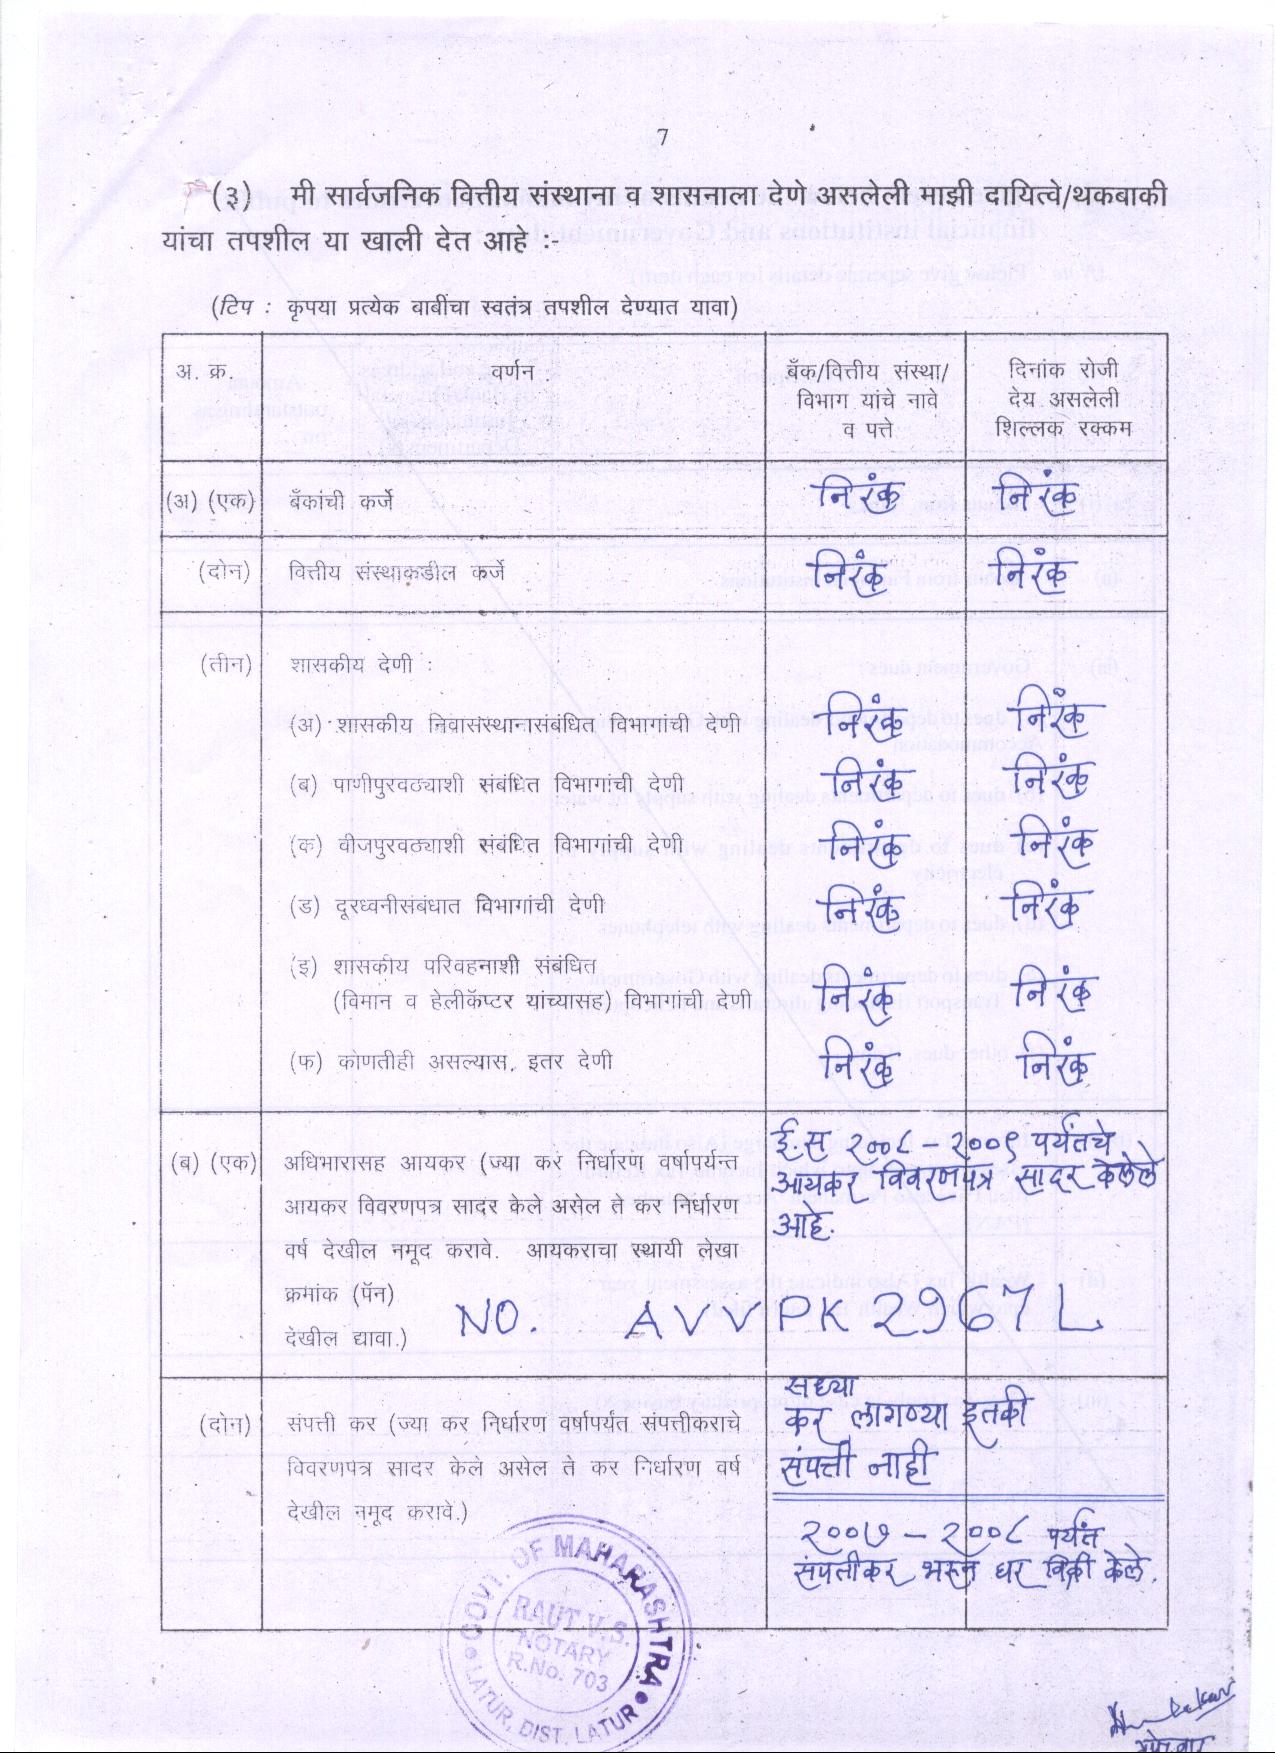 7
(३) मी सार्वजनिक वित्तीय संस्थाना व शासनाला देणे असलेली माझी दायित्वे/थकबाकी
यांचा तपशील या खाली देत आहे :-
(टिप : कृपया प्रत्येक बाबींचा स्वतंत्र तपशील देण्यात यावा)
अ. क्र. वर्णन बँक/वित्तीय संस्था/ दिनांक रोजी
विभाग यांचे नावे देय असलेली
व पत्ते शिल्लक रक्कम
(अ) (एक) बँकांची कर्जे निरंक निरंक
(दोन) वित्तीय संस्थाकडील कर्जे निरंक निरंक
(तीन) शासकीय देणी :
(अ) शासकीय निवासस्थानसंबधित विभागांची देणी निरंक निरंक
(ब) पाणीपुरवठ्याशी संबंधित विभागांची देणी निरंक निरंक
(क) वीजपुरवठ्याशी संबंधित विभागांची देणी निरंक निरंक
(ड) दूरध्वनीसंबधात विभागांची देणी निरंक निरंक
(इ) शासकीय परिवहनाशी संबंधित
(विमान व हेलीकॅप्टर यांच्यासह) विभागांची देणी निरंक निरंक
(फ) कोणतीही असल्यास, इतर देणी निरंक निरंक
(ब) (एक) अधिभारासह आयकर (ज्या कर निर्धारण वर्षापर्यन्त ई.स २००८ - २००९ पर्यंतचे
आयकर विवरणपत्र सादर केले असेल ते कर निर्धारण आयकर विवरणपत्र सादर केलेले
वर्ष देखील नमूद करावे. आयकराचा स्थायी लेखा आहे.
क्रमांक (पॅन)
देखील द्यावा.) NO. AVVPK2967L
सध्या
(दोन) संपत्ती कर (ज्या कर निर्धारण वर्षापर्यंत संपत्तीकराचे कर लागण्या इतकी
विवरणपत्र सादर केले असेल ते कर निर्धारण वर्ष संपत्ती नाही
देखील नमूद करावे.)
२००७ - २००८ पर्यंत
संपत्तीकर भरून घर विक्री केले.
GOVT. OF MAHARASHTRA
RAUT V. S.
NOTARY
R.No. 703
LATUR, DIST. LATUR